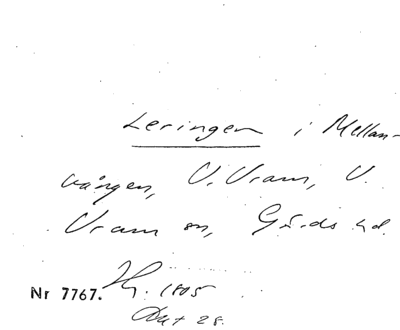 Leringen i Mellan-
vången, V. Vram, V.
Vram sn, Gärds hd.
Nr 7767. 1805
Akt 28.